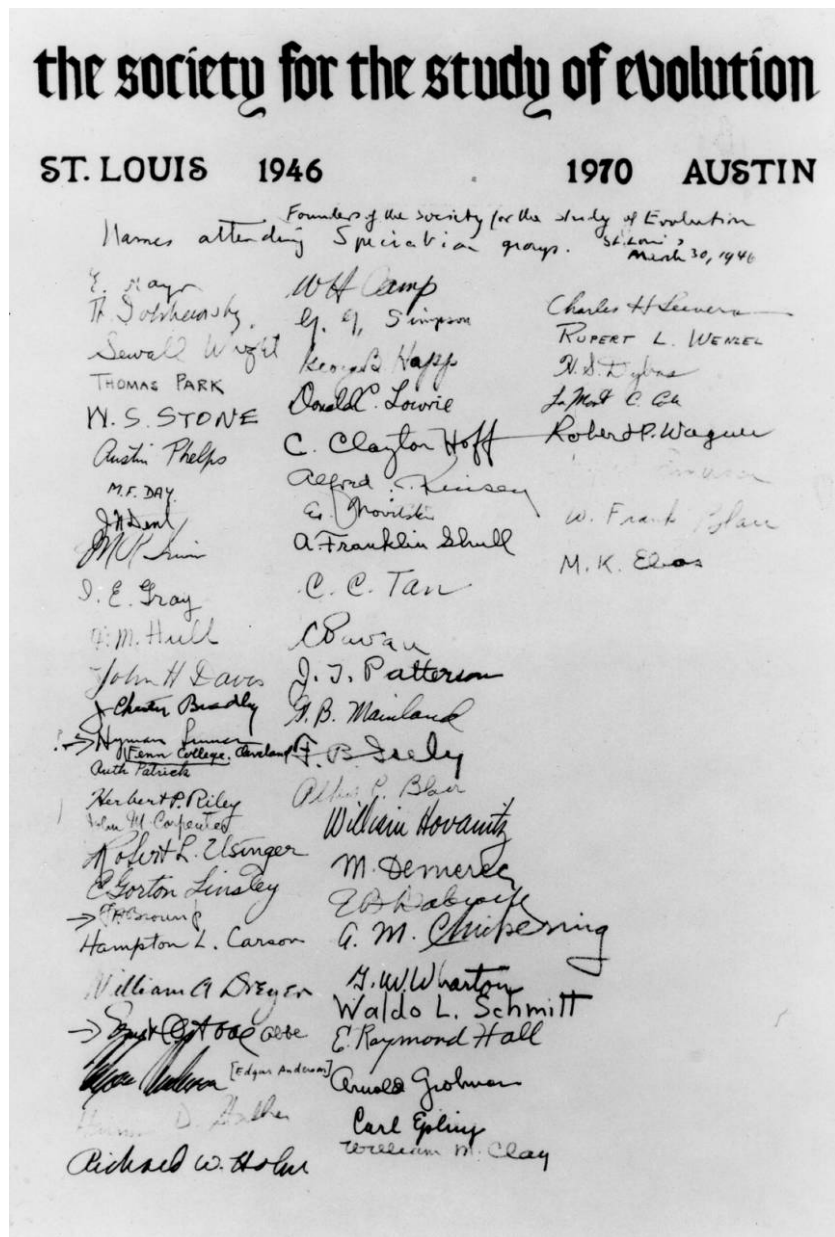 the society for the study of evolution
ST. LOUIS 1946 1970 AUSTIN
Founders of the Society for the study of Evolution
Names attending Speciation groups. St. Louis
March 30, 1946
E. Mayr
Th. Dobzhansky
Sewall Wright
THOMAS PARK
W. S. STONE
Austin Phelps
M. F. DAY.
J N Dent
M R Irwin
I. E. Gray
F. M. Hull
John H Davis
J. Chester Bradley
Hyman
Fenn College. Cleveland
Ruth Patrick
Herbert P. Riley
John M. Carpenter
Robert L. Usinger
E Gorton Linsley
Brown
Hampton L. Carson
William A Dreyer
Ernst Abbe
[Edgar Anderson]
D.
Richard W. Holm
W H Camp
G. G. Simpson
George B Happ
Donald C. Lowrie
C. Clayton Hoff
Alfred C. Kinsey
E. Novitski
A. Franklin Shull
C. C. Tan
C Pavan
J. T. Patterson
G. B. Mainland
F. B. Isely
Albert P. Blair
William Hovanitz
M. Demerec
E B Babcock
A. M. Chickering
G. W. Wharton
Waldo L. Schmitt
E. Raymond Hall
Arnold Grobman
Carl Epling
William M. Clay
Charles H Seevers
RUPERT L. WENZEL
H. S. Dybas
LaMont C. Cole
Robert P. Wagner
Emerson
W. Frank Blair
M. K. Elias